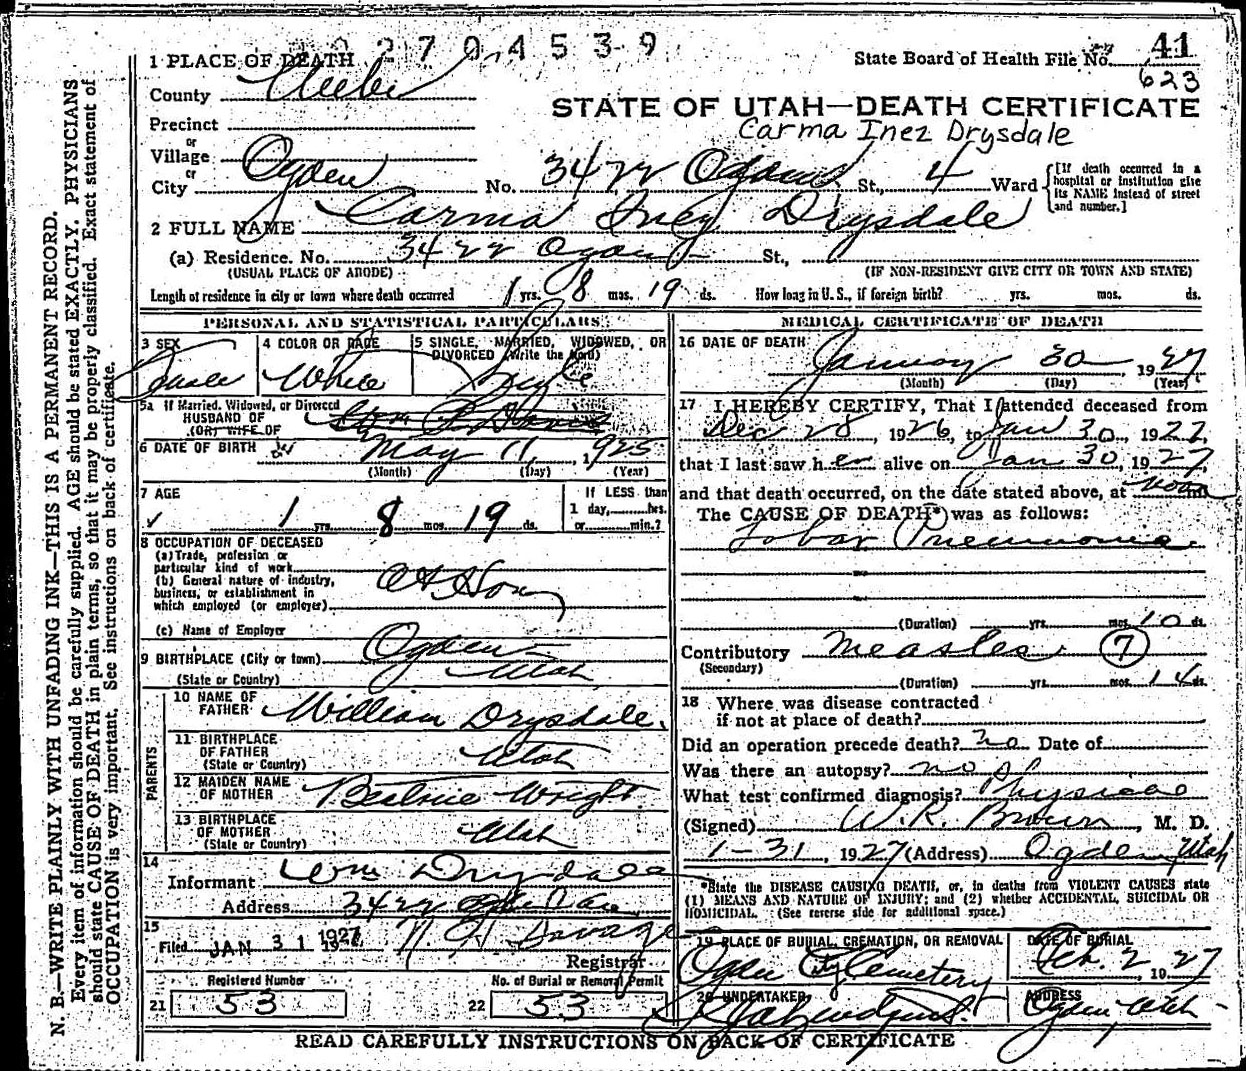 02704539
1 PLACE OF DEATH
State Board of Health File No. 41
623
County Weber
STATE OF UTAH—DEATH CERTIFICATE
Carma Inez Drysdale
Precinct
or
Village
or
City Ogden No. 3422 Ogden St., 4 Ward
[If death occurred in a hospital or institution give its NAME instead of street and number.]
2 FULL NAME Carma Inez Drysdale
(a) Residence. No. 3422 Ogden St.,
(USUAL PLACE OF ABODE) (IF NON-RESIDENT GIVE CITY OR TOWN AND STATE)
Length of residence in city or town where death occurred 1 yrs. 8 mos. 19 ds. How long in U. S., if foreign birth? yrs. mos. ds.
PERSONAL AND STATISTICAL PARTICULARS
3 SEX
Female
4 COLOR OR RACE
White
5 SINGLE, MARRIED, WIDOWED, OR DIVORCED (Write the word)
Single
5a If Married, Widowed, or Divorced
HUSBAND OF
(OR) WIFE OF
6 DATE OF BIRTH May 11, 1925
(Month) (Day) (Year)
7 AGE
1 yrs. 8 mos. 19 ds.
If LESS than
1 day, hrs.
or min.?
8 OCCUPATION OF DECEASED
(a) Trade, profession or
particular kind of work
(b) General nature of industry,
business, or establishment in
which employed (or employer)
At Home
(c) Name of Employer
9 BIRTHPLACE (City or town) Ogden
(State or Country) Utah
PARENTS
10 NAME OF
FATHER William Drysdale.
11 BIRTHPLACE
OF FATHER
(State or Country) Utah
12 MAIDEN NAME
OF MOTHER Beatrice Wright
13 BIRTHPLACE
OF MOTHER
(State or Country) Utah
14
Informant Wm Drysdale
Address 3422 Ogden Ave.
15
Filed JAN 31 1927
Registrar
Registered Number
21 53
No. of Burial or Removal Permit
22 53
MEDICAL CERTIFICATE OF DEATH
16 DATE OF DEATH
January 30 1927
(Month) (Day) (Year)
17 I HEREBY CERTIFY, That I attended deceased from
Dec 28, 1926, to Jan 30, 1927,
that I last saw her alive on Jan 30, 1927,
and that death occurred, on the date stated above, at Noon
The CAUSE OF DEATH* was as follows:
Lobar Pneumonia
(Duration) yrs. mos. 10 ds.
Contributory Measles 7
(Secondary)
(Duration) yrs. mos. 14 ds.
18 Where was disease contracted
if not at place of death?
Did an operation precede death? no Date of
Was there an autopsy? no
What test confirmed diagnosis? Physical
(Signed) W. R. Brown, M. D.
1-31, 1927 (Address) Ogden Utah
*State the DISEASE CAUSING DEATH, or, in deaths from VIOLENT CAUSES state
(1) MEANS AND NATURE OF INJURY; and (2) whether ACCIDENTAL, SUICIDAL OR
HOMICIDAL. (See reverse side for additional space.)
19 PLACE OF BURIAL, CREMATION, OR REMOVAL
Ogden City Cemetery
DATE OF BURIAL
Feb. 2, 1927
20 UNDERTAKER
ADDRESS
Ogden, Utah
READ CAREFULLY INSTRUCTIONS ON BACK OF CERTIFICATE
N. B.—WRITE PLAINLY WITH UNFADING INK—THIS IS A PERMANENT RECORD.
Every item of information should be carefully supplied. AGE should be stated EXACTLY. PHYSICIANS
should state CAUSE OF DEATH in plain terms, so that it may be properly classified. Exact statement of
OCCUPATION is very important. See instructions on back of certificate.